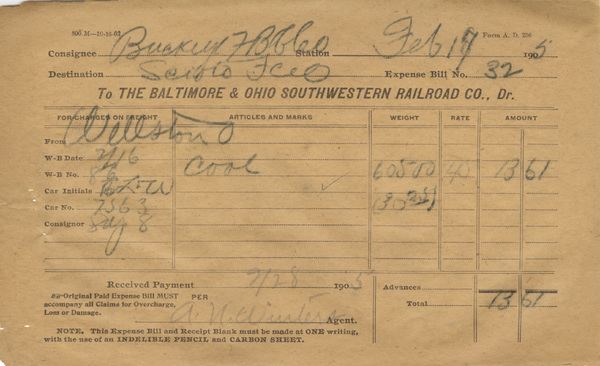 800 M—10-25-02 Form A. D. 256
Consignee Buckeye F B Co Station Feb 17 1905
Destination Scioto Fce O Expense Bill No. 32
To THE BALTIMORE & OHIO SOUTHWESTERN RAILROAD CO., Dr.
FOR CHARGES ON FREIGHT ARTICLES AND MARKS WEIGHT RATE AMOUNT
From Wellston O
W-B Date 2/16
W-B No. Coal 60500 45 13 61
Car Initials
Car No. 7563
Consignor 8
Received Payment 2/28 1905 Advances
Original Paid Expense Bill MUST PER
accompany all Claims for Overcharge, Total 13 61
Loss or Damage. Agent.
NOTE, This Expense Bill and Receipt Blank must be made at ONE writing,
with the use of an INDELIBLE PENCIL and CARBON SHEET.